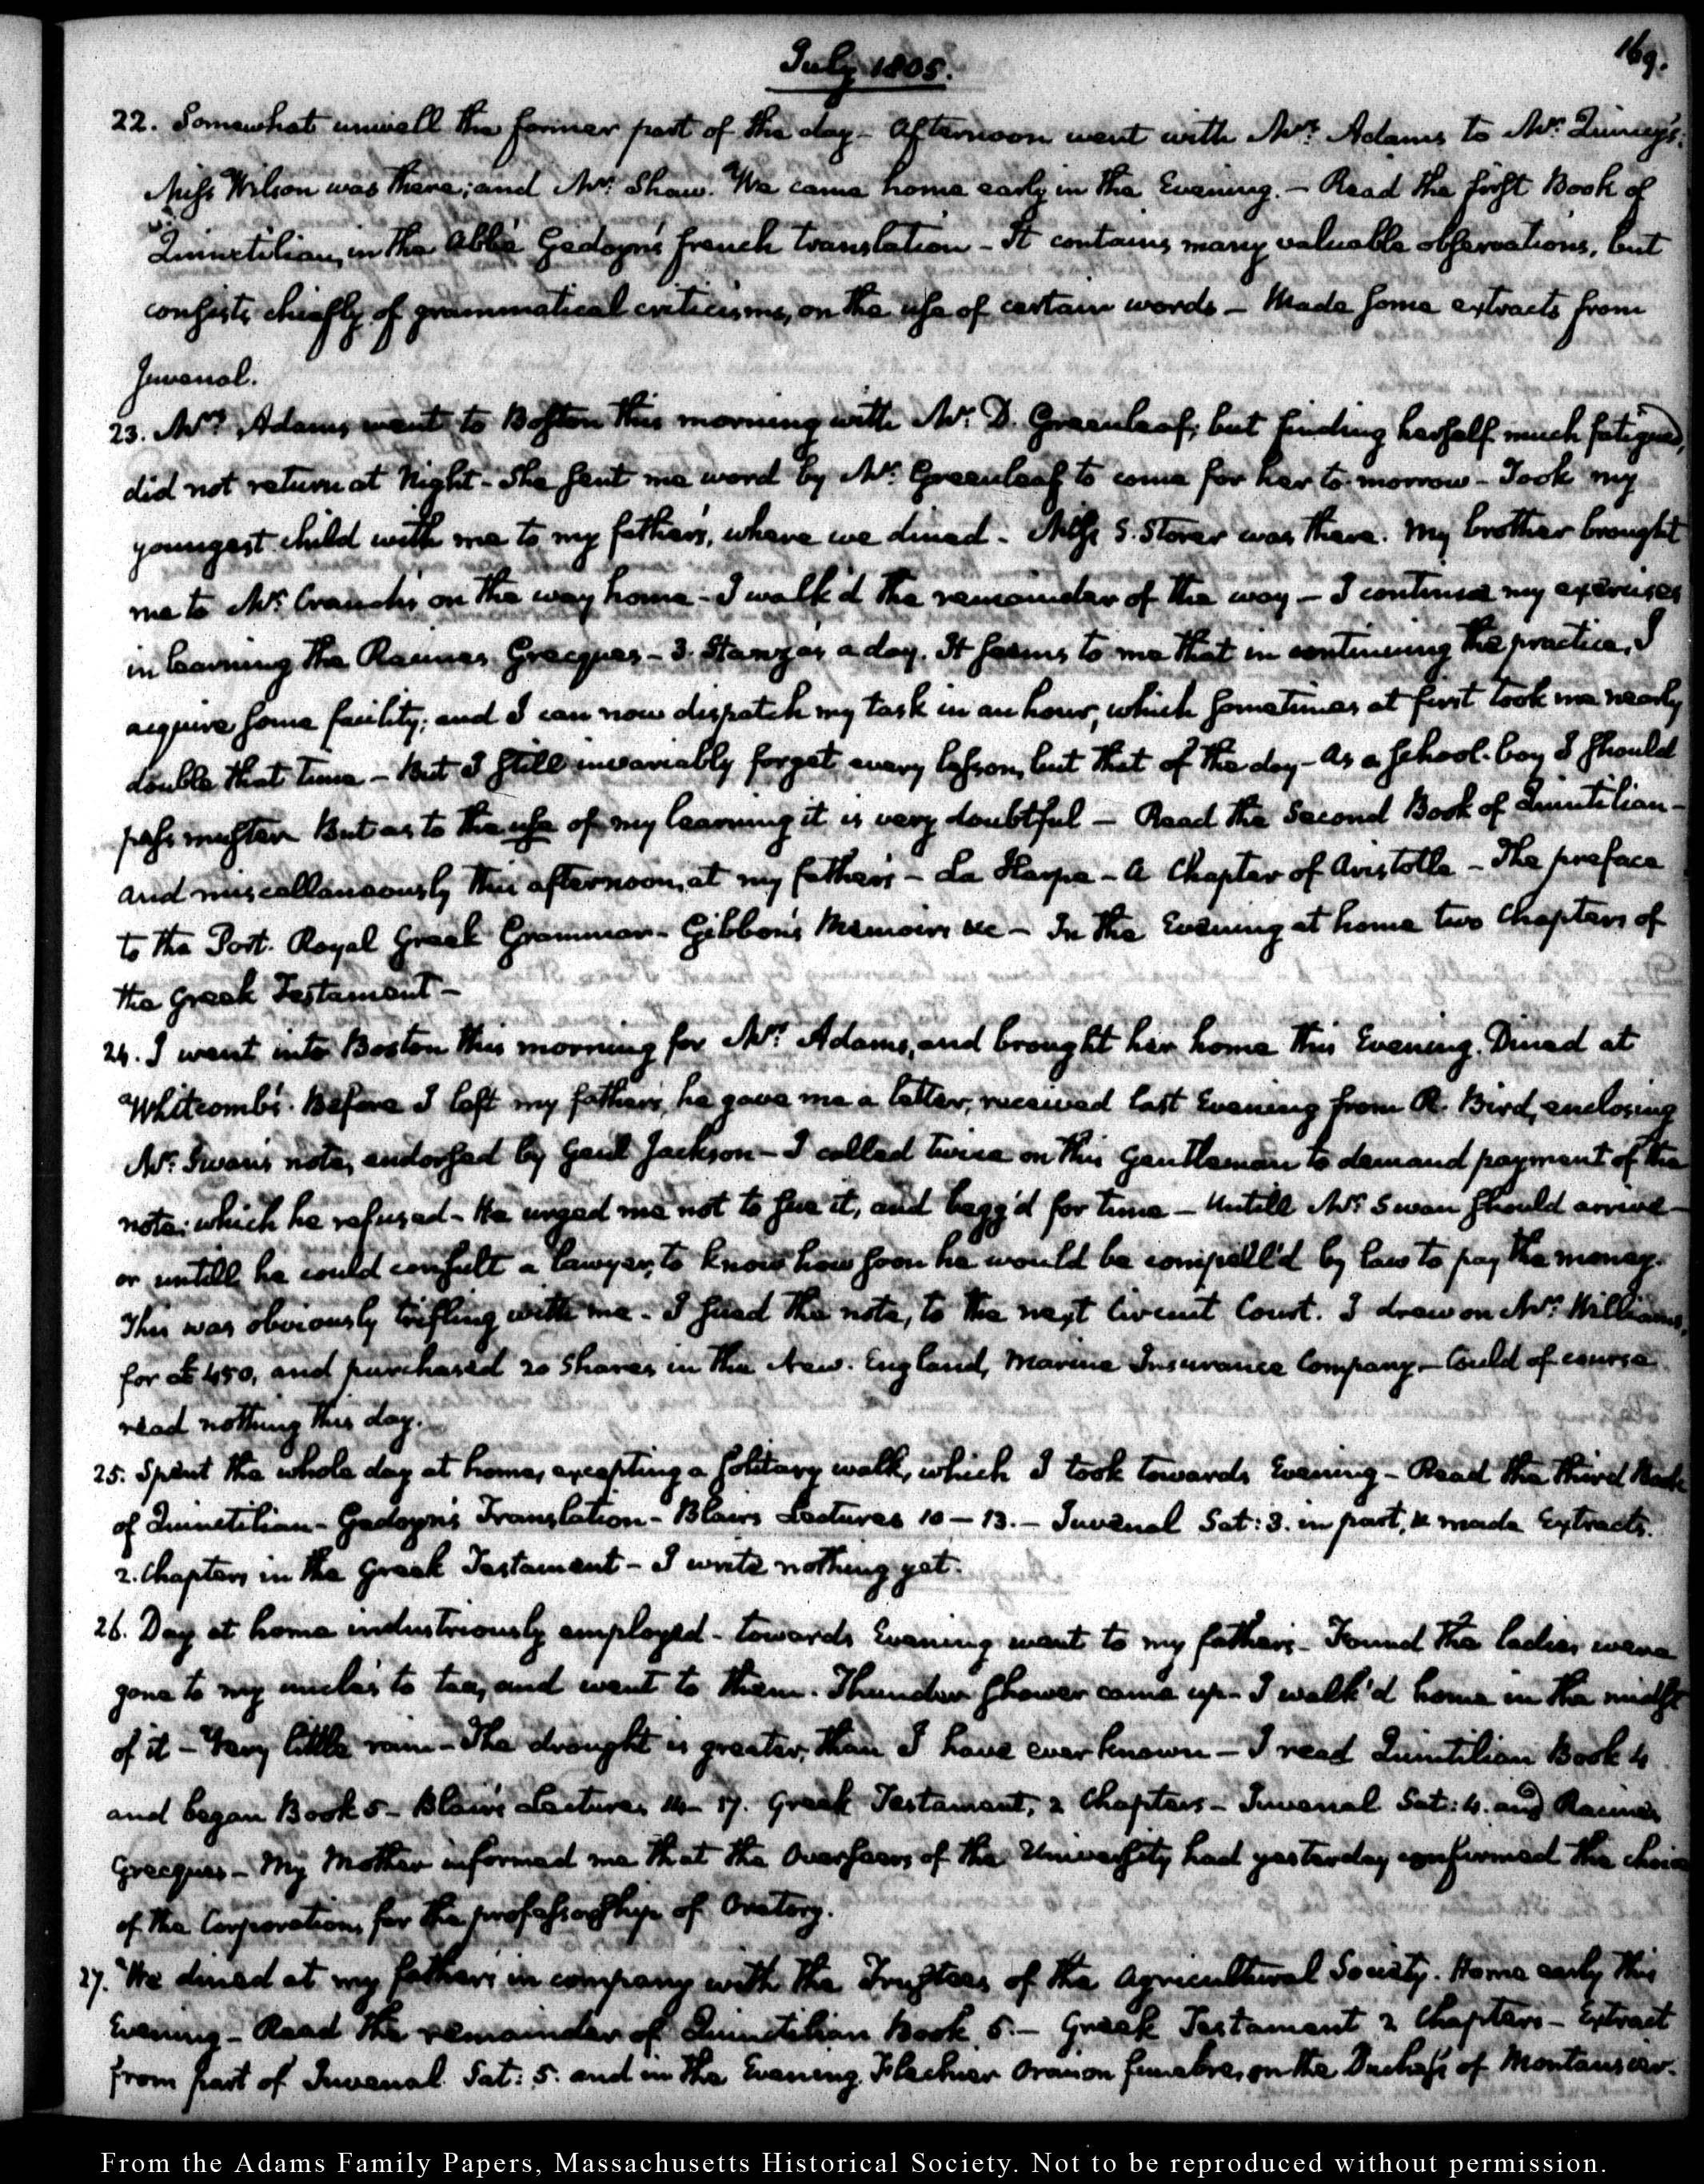 July 1805.
169.
22. Somewhat unwell the former part of the day - Afternoon went with Mrs. Adams to Mr. Quincy's.
Miss Wilson was there; and Mr. Shaw. We came home early in the Evening. - Read the first Book of
Quinctilian, in the Abbé Gedoyn's french translation - It contains many valuable observations, but
consists chiefly of grammatical criticisms, on the use of certain words - Made some extracts from
Juvenal.
23. Mrs. Adams went to Boston this morning with Mr. D. Greenleaf; but finding herself much fatigued,
did not return at Night - She sent me word by Mr. Greenleaf to come for her to-morrow - Took my
youngest child with me to my father's, where we dined - Miss S. Storer was there. My brother brought
me to Mr. Cranch's on the way home - I walk'd the remainder of the way - I continue my exercises
in learning the Racines Grecques - 3 Stanzas a day. It seems to me that in continuing the practice, I
acquire some facility; and I can now dispatch my task in an hour, which sometimes at first took me nearly
double that time - But I still invariably forget every lesson, but that of the day - As a school-boy I should
pass muster But as to the use of my learning it is very doubtful - Read the Second Book of Quintilian -
and miscellaneously this afternoon, at my father's - La Harpe - A Chapter of Aristotle - The preface
to the Port-Royal Greek Grammar - Gibbon's Memoirs &c - In the Evening at home two Chapters of
the Greek Testament -
24. I went into Boston this morning for Mrs. Adams, and brought her home this Evening. Dined at
Whitcomb's. Before I left my father's, he gave me a letter, received last Evening from R. Bird, enclosing
Mr. Swan's note, endorsed by Genl. Jackson - I called twice on this Gentleman to demand payment of the
note; which he refused - He urged me not to sue it, and begg'd for time - Untill Mr. Swan should arrive -
or untill he could consult a lawyer, to know how soon he would be compell'd by law to pay the money.
This was obviously trifling with me - I sued the note, to the next Circuit Court. I drew on Mr. Williams,
for £450, and purchased 20 Shares in the New-England, Marine Insurance Company - Could of course
read nothing this day.
25. Spent the whole day at home, excepting a solitary walk, which I took towards Evening - Read the third Book
of Quinctilian - Gedoyn's Translation - Blair's Lectures 10 - 13. - Juvenal Sat: 3. in part, & made Extracts.
2. Chapters in the Greek Testament - I write nothing yet.
26. Day at home industriously employed - towards Evening went to my father's - Found the ladies were
gone to my uncle's to tea, and went to them. Thunder shower came up - I walk'd home in the midst
of it - Very little rain - The drought is greater, than I have ever known - I read Quintilian Book 4
and began Book 5 - Blair's Lectures 14 - 17. Greek Testament, 2 Chapters - Juvenal Sat: 4. and Racines
Grecques - My Mother informed me that the Overseers of the University had yesterday confirmed the choice
of the Corporation, for the professorship of Oratory.
27. We dined at my father's in company with the Trustees of the Agricultural Society. Home early this
Evening - Read the remainder of Quinctilian Book 5. - Greek Testament 2 Chapters - Extract
from part of Juvenal Sat: 5. and in the Evening Flechier Oraison funebre, on the Duchess of Montausier.
From the Adams Family Papers, Massachusetts Historical Society. Not to be reproduced without permission.